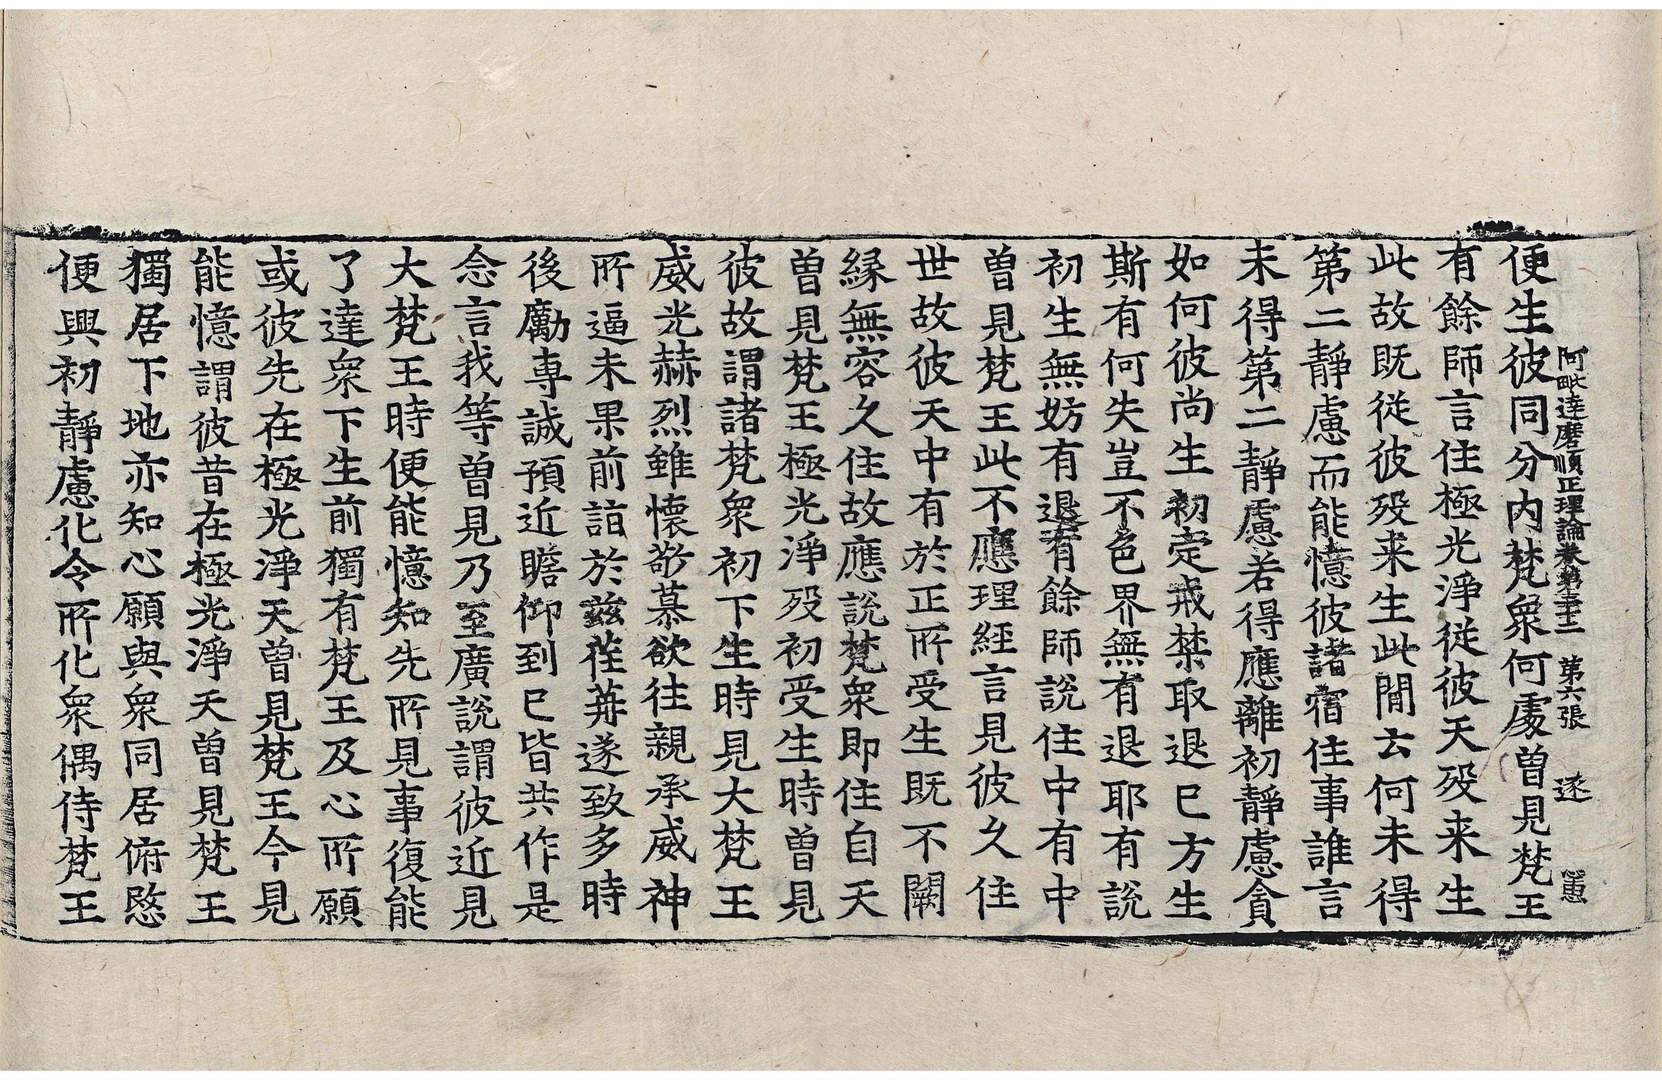 阿毗達磨順正理論卷第二十二 第六張 逐 㥁
便生彼同分內梵衆何處曾見梵王
有餘師言住極光淨從彼天歿来生
此故既従彼歿来生此閒云何未得
第二靜慮而能憶彼諸宿住事誰言
未得第二靜慮若得應離初靜慮貪
如何彼尚生初定戒禁取退巳方生
斯有何失豈不色界無有退耶有說
初生無妨有退有餘師說住中有中
曾見梵王此不應理經言見彼久住
世故彼天中有於正所受生既不闕
緣無容久住故應說梵衆即住自天
曾見梵王極光淨歿初受生時曾見
彼故謂諸梵衆初下生時見大梵王
威光赫烈雖懷敬慕欲往親承威神
所逼未果前詣於茲荏苒遂致多時
後勵專誠預近瞻仰到巳皆共作是
念言我等曾見乃至廣說謂彼近見
大梵王時便能憶知先所見事復能
了達衆下生前獨有梵王及心所願
或彼先在極光淨天曾見梵王今見
能憶謂彼昔在極光淨天曾見梵王
獨居下地亦知心願與衆同居俯愍
便興初靜慮化令所化衆偶侍梵王